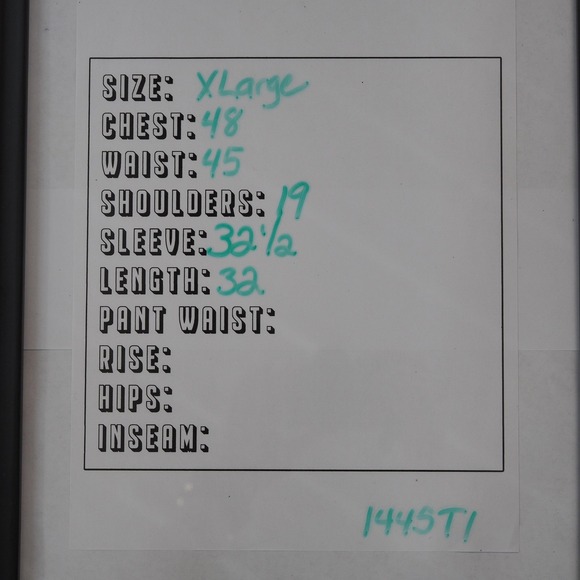 SIZE: XLarge
CHEST: 48
WAIST: 45
SHOULDERS: 19
SLEEVE: 32 1/2
LENGTH: 32
PANT WAIST:
RISE:
HIPS:
INSEAM:
144ST1